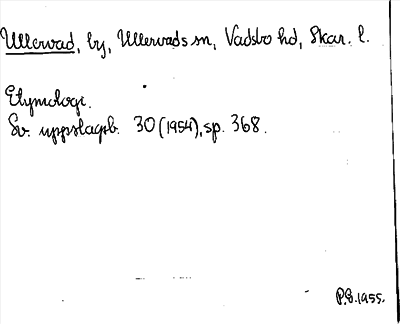 Ullervad, by, Ullervads sn, Vadsbo hd, Skar. l.
Etymologi.
Sv. uppslagsb. 30 (1954), sp. 368.
P.S. 1955.